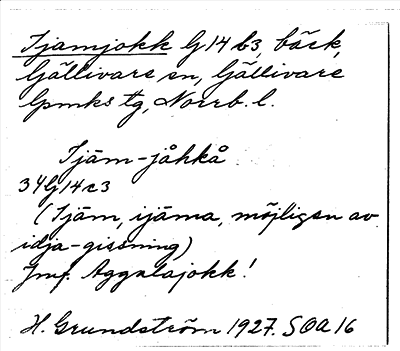 Ijamjokk G14 b3, bäck,
Gällivare sn, Gällivare
lpmks tg, Norrb. l.
Ijām-jåhkå
34G14c3
(Ijām, ijāma, möjligen av
idja-gissning)
Jmf. Aggalajokk!
H. Grundström 1927. SOA 16